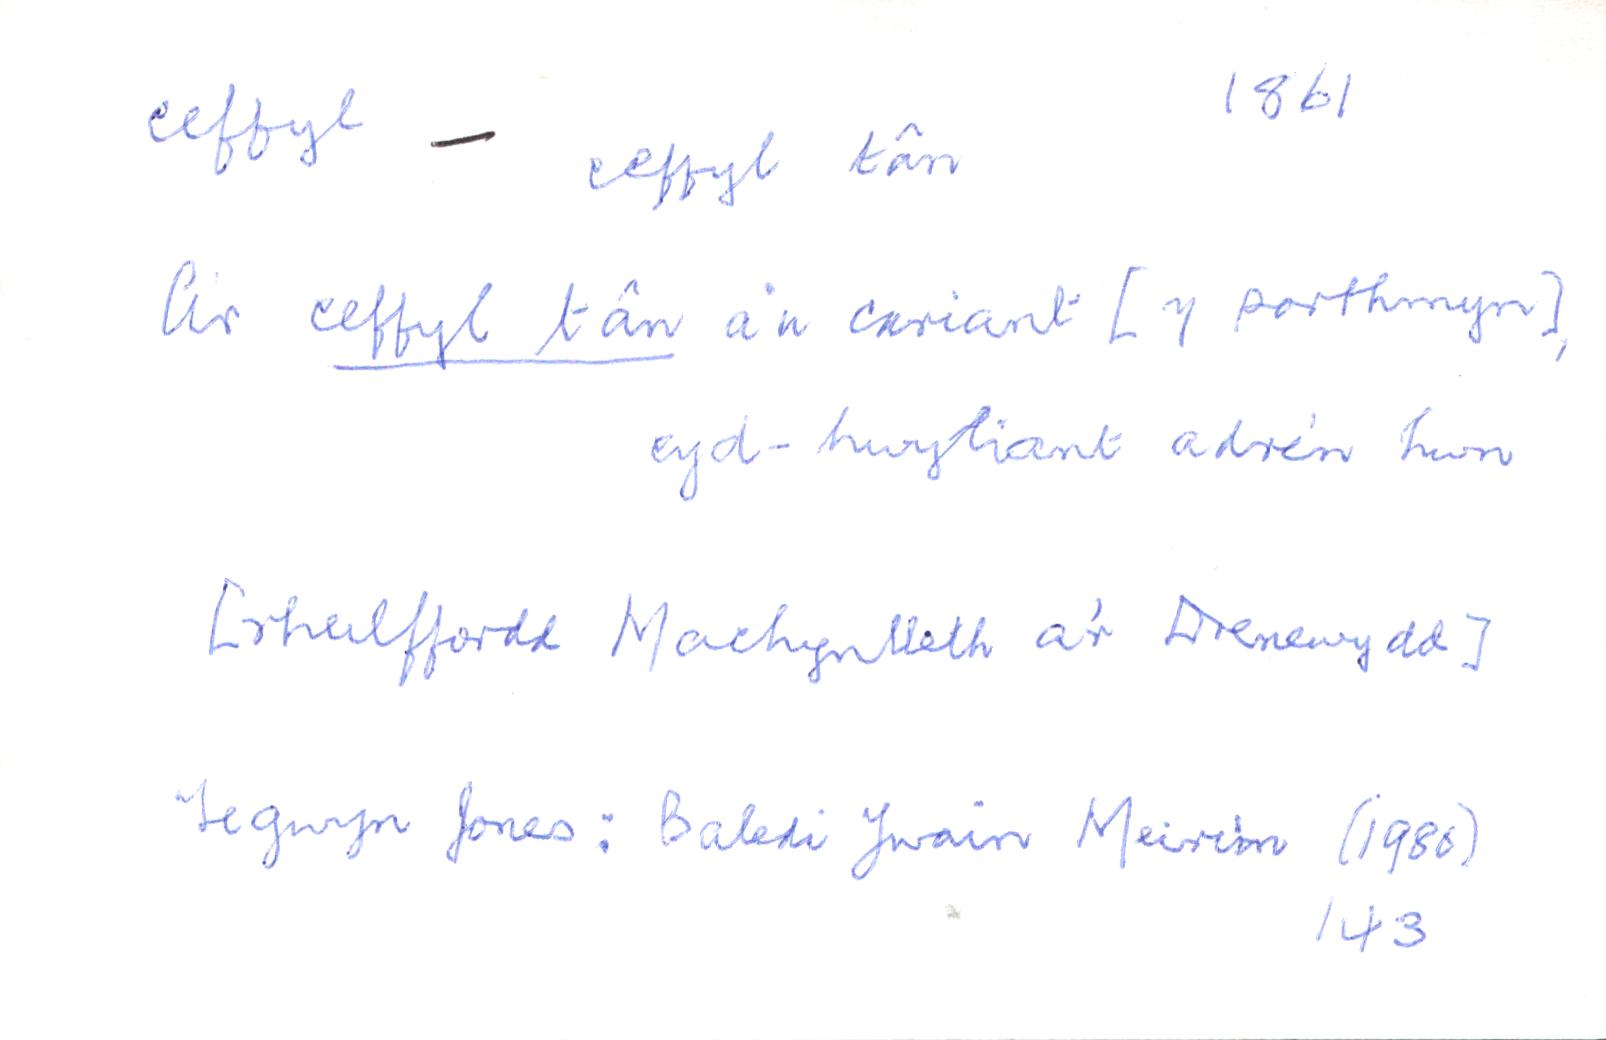 ceffyl — ceffyl tân 1861
Ar ceffyl tân a'u cariant [y porthmyn],
cyd-hwyliant adre'n hwn
[rheilffordd Machynlleth a'r Drenewydd]
Tegwyn Jones: Baledi Ywain Meirion (1980)
143